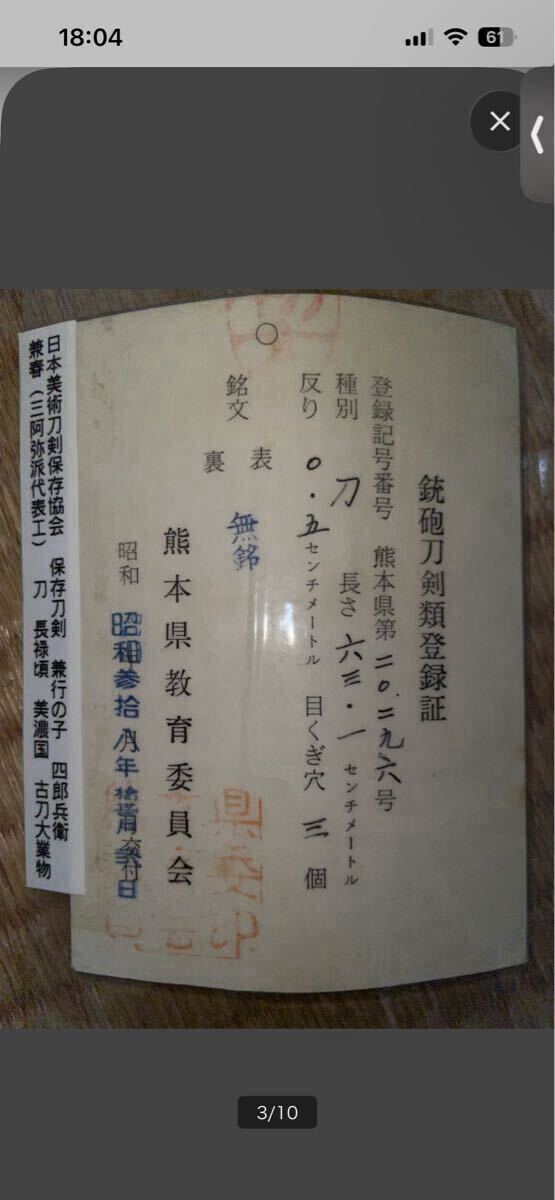 18:04
61
銃砲刀剣類登録証
登録記号番号 熊本県第二〇二九六号
種別 刀 長さ 六三・一 センチメートル
反り 〇・五 センチメートル 目くぎ穴 三 個
銘文 表 無銘
裏
熊本県教育委員会
昭和 昭和参拾八年 月 日 交付
日本美術刀剣保存協会 保存刀剣 兼行の子 四郎兵衛
兼春(三阿弥派代表工) 刀 長禄頃 美濃国 古刀大業物
3/10